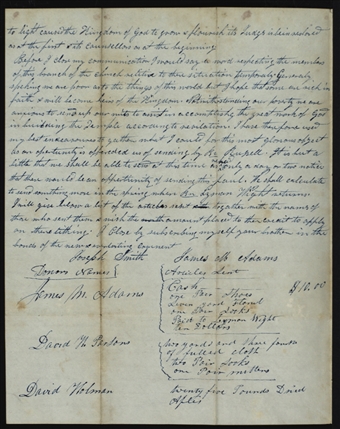 to light causes the Kingdom of God to grow & flourish its Judges been restored
as at the first & its counsellors as at the beginning
Before I close my communication I would say a word respecting the members
of this branch of the church relative to their situation temporaly Generaly
speaking we are poor as to the things of this world but I hope that some are rich in
faith & will become heirs of the Kingdom Notwithstanding our poverty we are
anxious to our mite to in accomplishing the great work of God
in building the Temple according to revelation I have therefore used
my best endeavours to gather what I could for this most glorious object
as an opportunity is afforded us of sending by Br. Russell It is but a
little that we shall be able to send at this time as early in
that there would be an opportunity of sending this fall. We shall calculate
to send something more in the spring when Br. Lyman Wight returns
I will give below a list of the articles sent together with the names of
those who sent them & wish the amount placed to their credit to apply
on their tithing I close by subscribing myself your brother in the
bonds of the new & everlasting covenant
Joseph Smith James M Adams
Donors Names Articles Sent
James M. Adams Cash $10.00
one Pair Shoes
yard flannel
one Pair Socks
Paid to Lyman Wight
ten Dollars
David N. Parsons two yards and three fourths
of fulled cloth
two Pair Socks
one Pair mittens
David Holman twenty five Pounds Dried
Aples